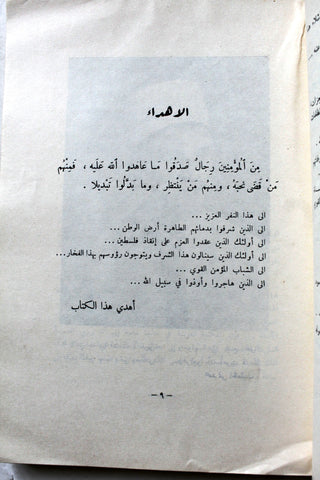 الاهداء
مِنَ المُؤْمِنِينَ رِجَالٌ صَدَقُوا مَا عَاهَدُوا اللهَ عَلَيهِ ، فَمِنْهُم
مَنْ قَضَى نَحْبَهُ ، ومِنهُم مَنْ يَنْتَظِر ، ومَا بَدَّلُوا تَبْدِيلا .
الى هذا النفر العزيز ...
الى الذين شرفوا بدمائهم الطاهرة أرض الوطن ...
الى أولئك الذين عقدوا العزم على إنقاذ فلسطين ...
الى أولئك الذين سينالون هذا الشرف ويتوجون رؤوسهم بهذا الفخار ...
الى الشباب المؤمن القوي ...
الى الذين هاجروا وأوذوا في سبيل الله ...
أهدي هذا الكتاب
- ٩ -